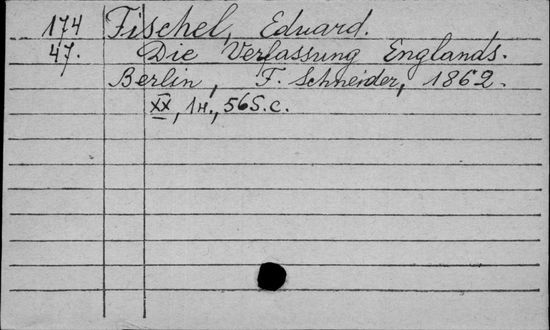 174 Fischel, Eduard.
47. Die Verfassung Englands.
Berlin, F. Schneider, 1862.
XX, 1н., 565.c.